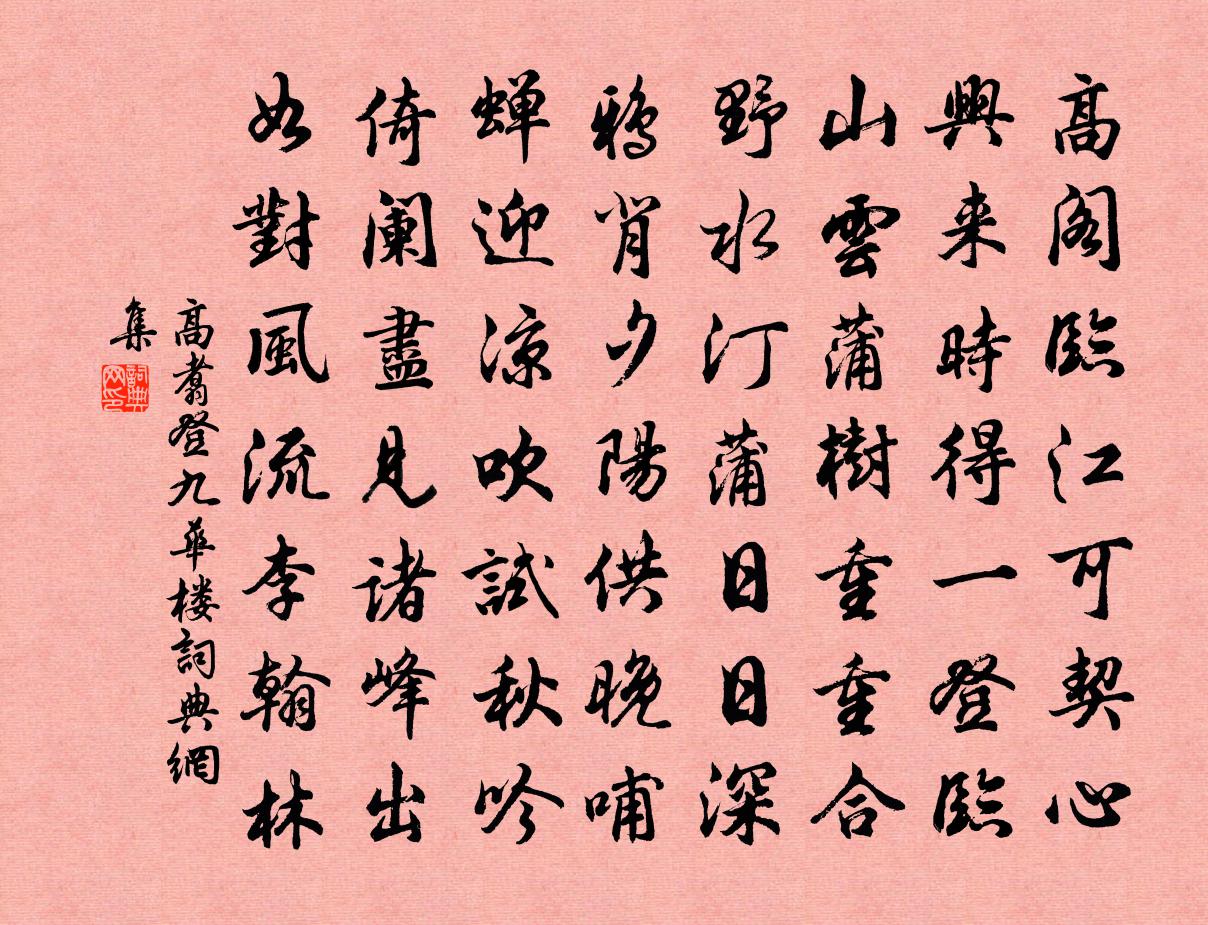 高阁臨江可契心
興来時得一登臨
山雲蒲樹重重合
野水汀蒲日日深
鸦背夕陽供晚哺
蝉迎凉吹試秋吟
倚阑盡見諸峰出
如對風流李翰林
高翥登九華楼詞典網
集
詞典
网印